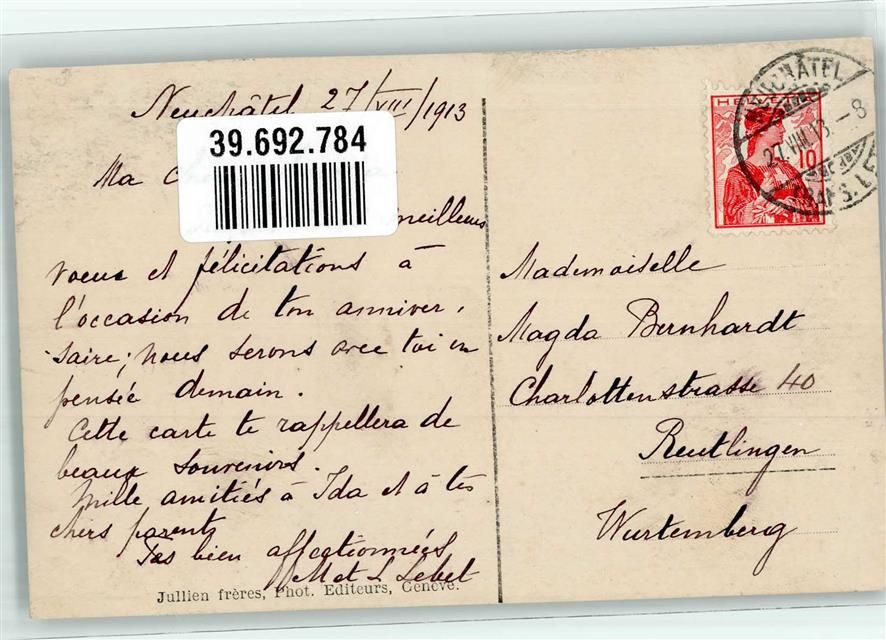 Neuchâtel 27/VIII/1913
39.692.784
Ma
meilleurs
voeux et félicitations à
l'occasion de ton anniver-
saire; nous serons avec toi en
pensée demain.
Cette carte te rappellera de
beaux souvenirs.
Mille amitiés à Ida et à tes
chers parents
Tes bien affectionnées
M et L Lebet
Jullien frères, Phot. Editeurs, Genève.
HELVETIA
10
NEUCHÂTEL
27.VIII.13.-8
Mademoiselle
Magda Bernhardt
Charlottenstrasse 40
Reutlingen
Wurtemberg